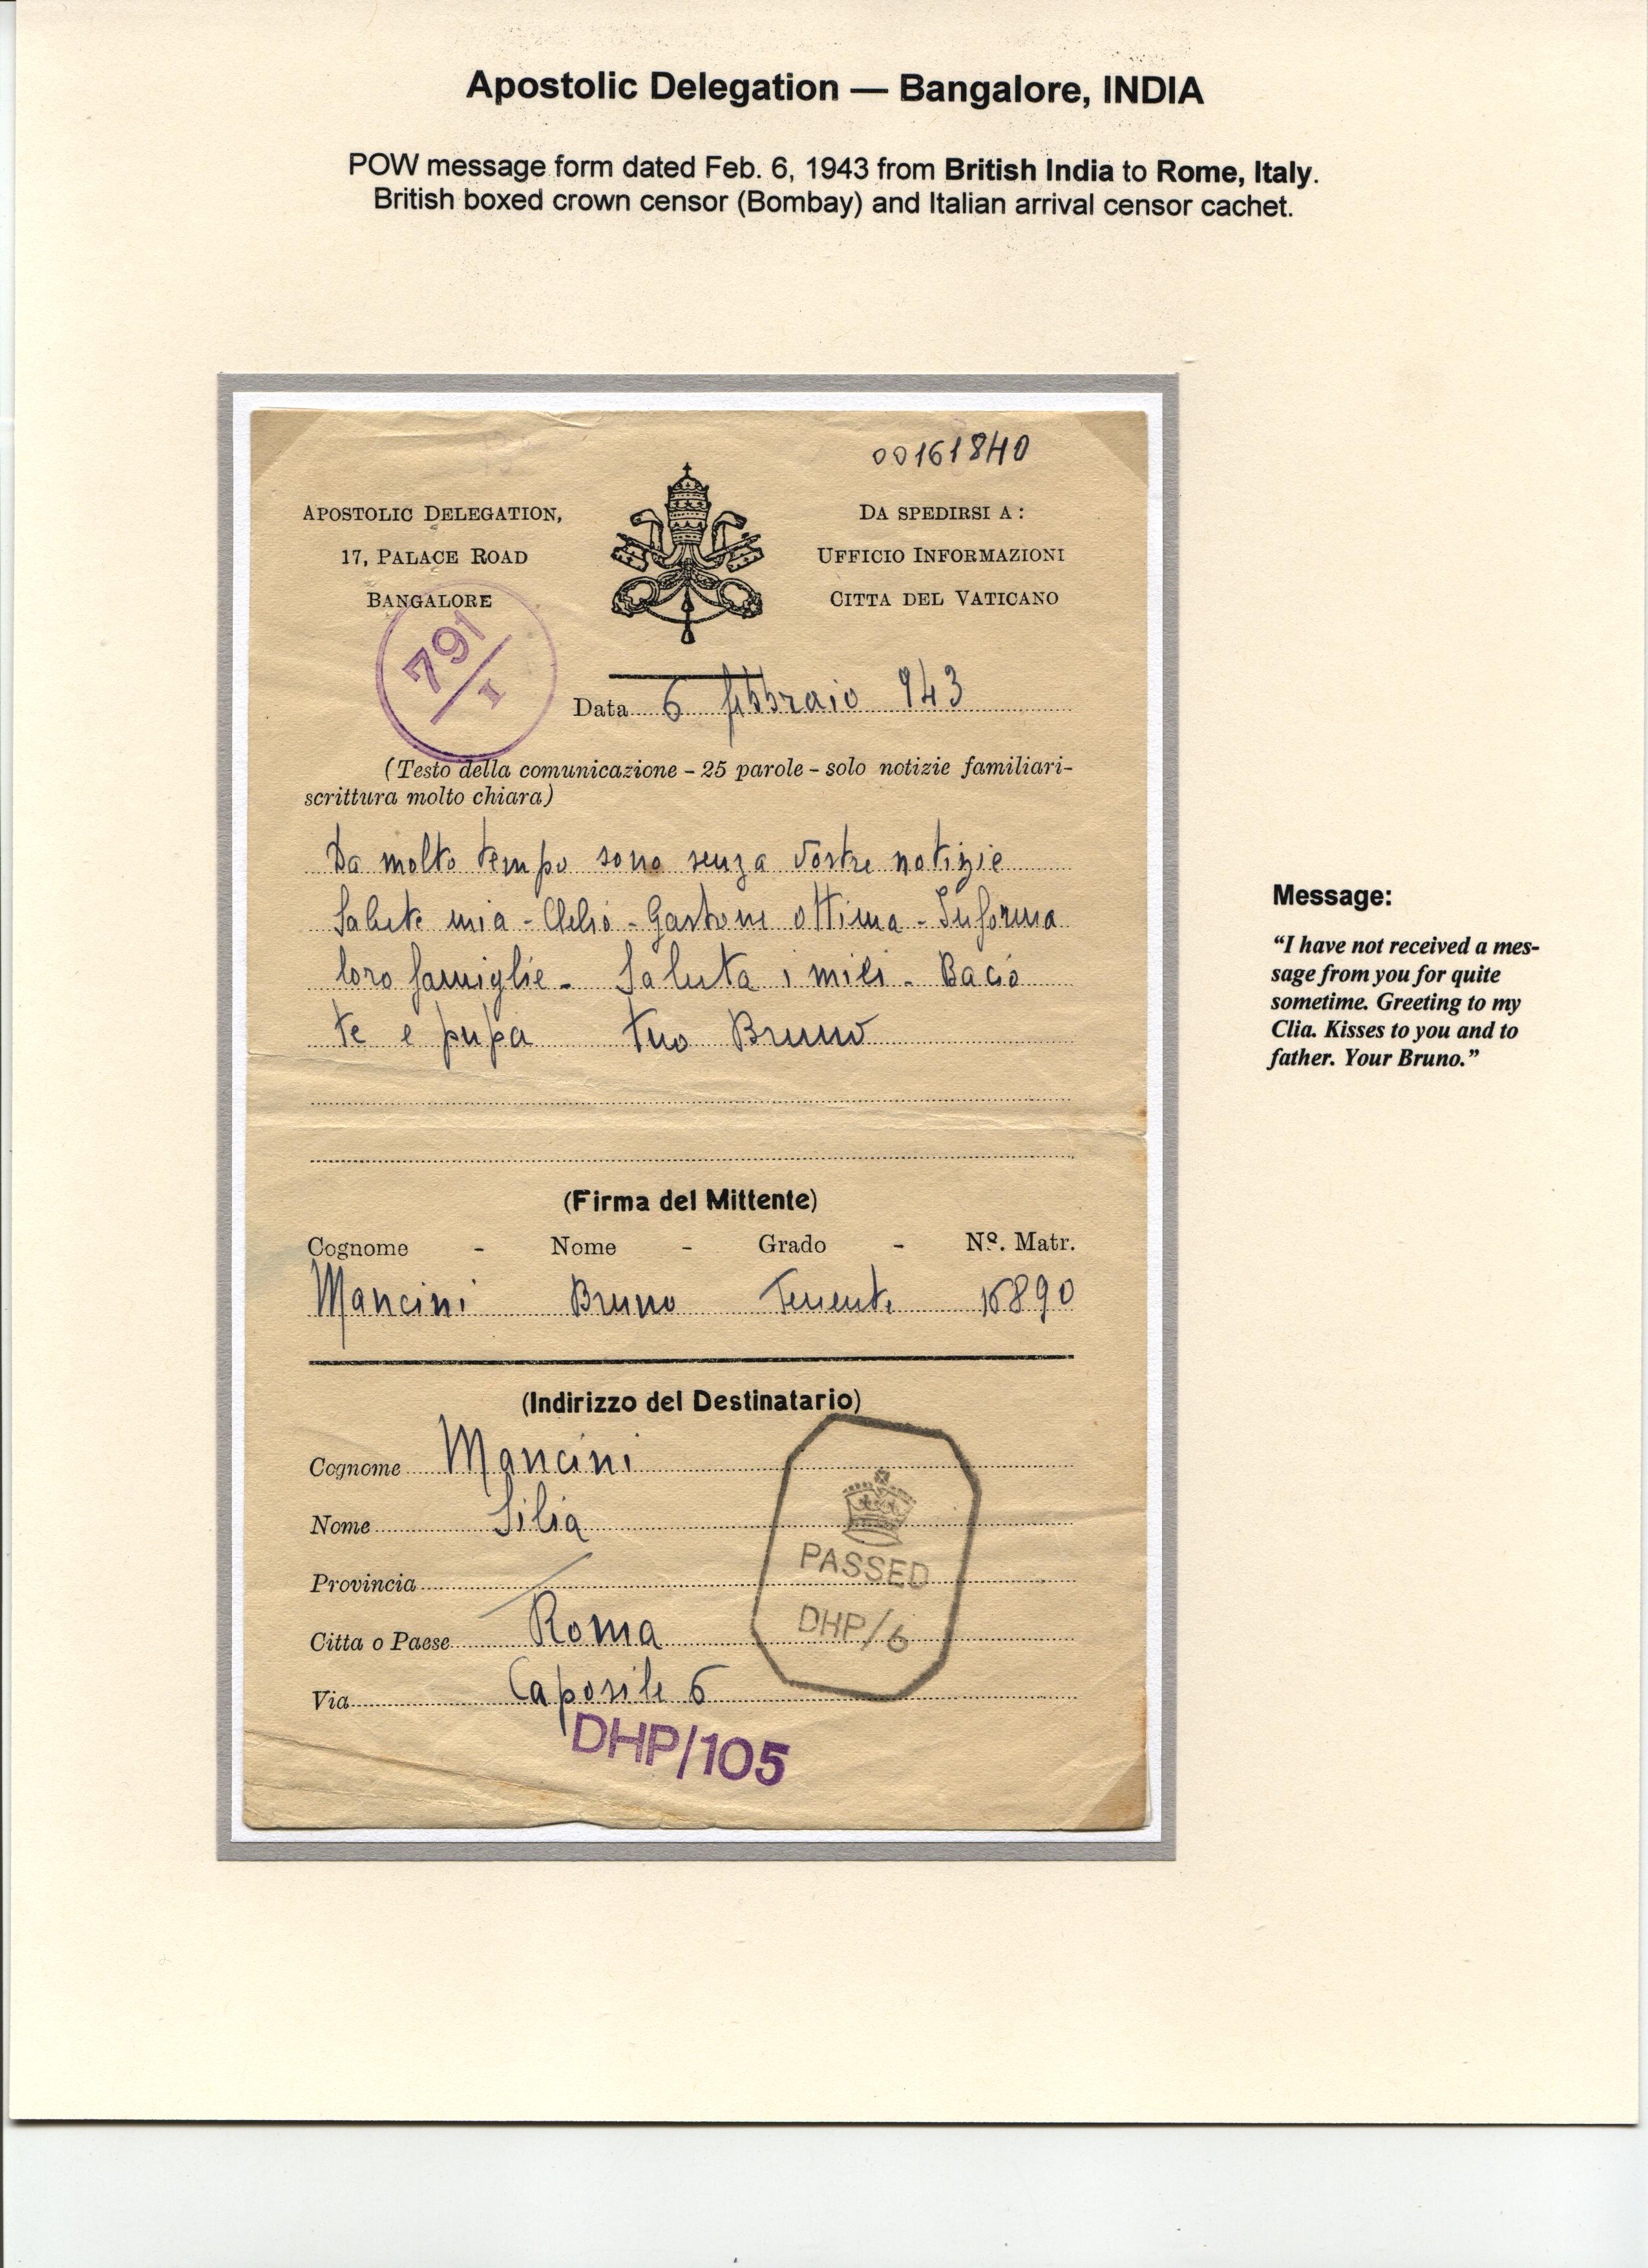 Apostolic Delegation — Bangalore, INDIA
POW message form dated Feb. 6, 1943 from British India to Rome, Italy.
British boxed crown censor (Bombay) and Italian arrival censor cachet.
00161840
APOSTOLIC DELEGATION,
17, PALACE ROAD
BANGALORE
DA SPEDIRSI A :
UFFICIO INFORMAZIONI
CITTA DEL VATICANO
791/I
Data 6 febbraio 943
(Testo della comunicazione - 25 parole - solo notizie familiari-
scrittura molto chiara)
Da molto tempo sono senza vostre notizie
Salute mia - Clelio - Gastone ottima - Informa
loro famiglie - Saluta i miei - Bacio
te e pupa tuo Bruno
(Firma del Mittente)
Cognome - Nome - Grado - Nº. Matr.
Mancini Bruno Tenente 16890
(Indirizzo del Destinatario)
Cognome Mancini
Nome Silia
Provincia
Citta o Paese Roma
Via Caposile 6
PASSED
DHP/6
DHP/105
Message:
“I have not received a mes-
sage from you for quite
sometime. Greeting to my
Clia. Kisses to you and to
father. Your Bruno.”